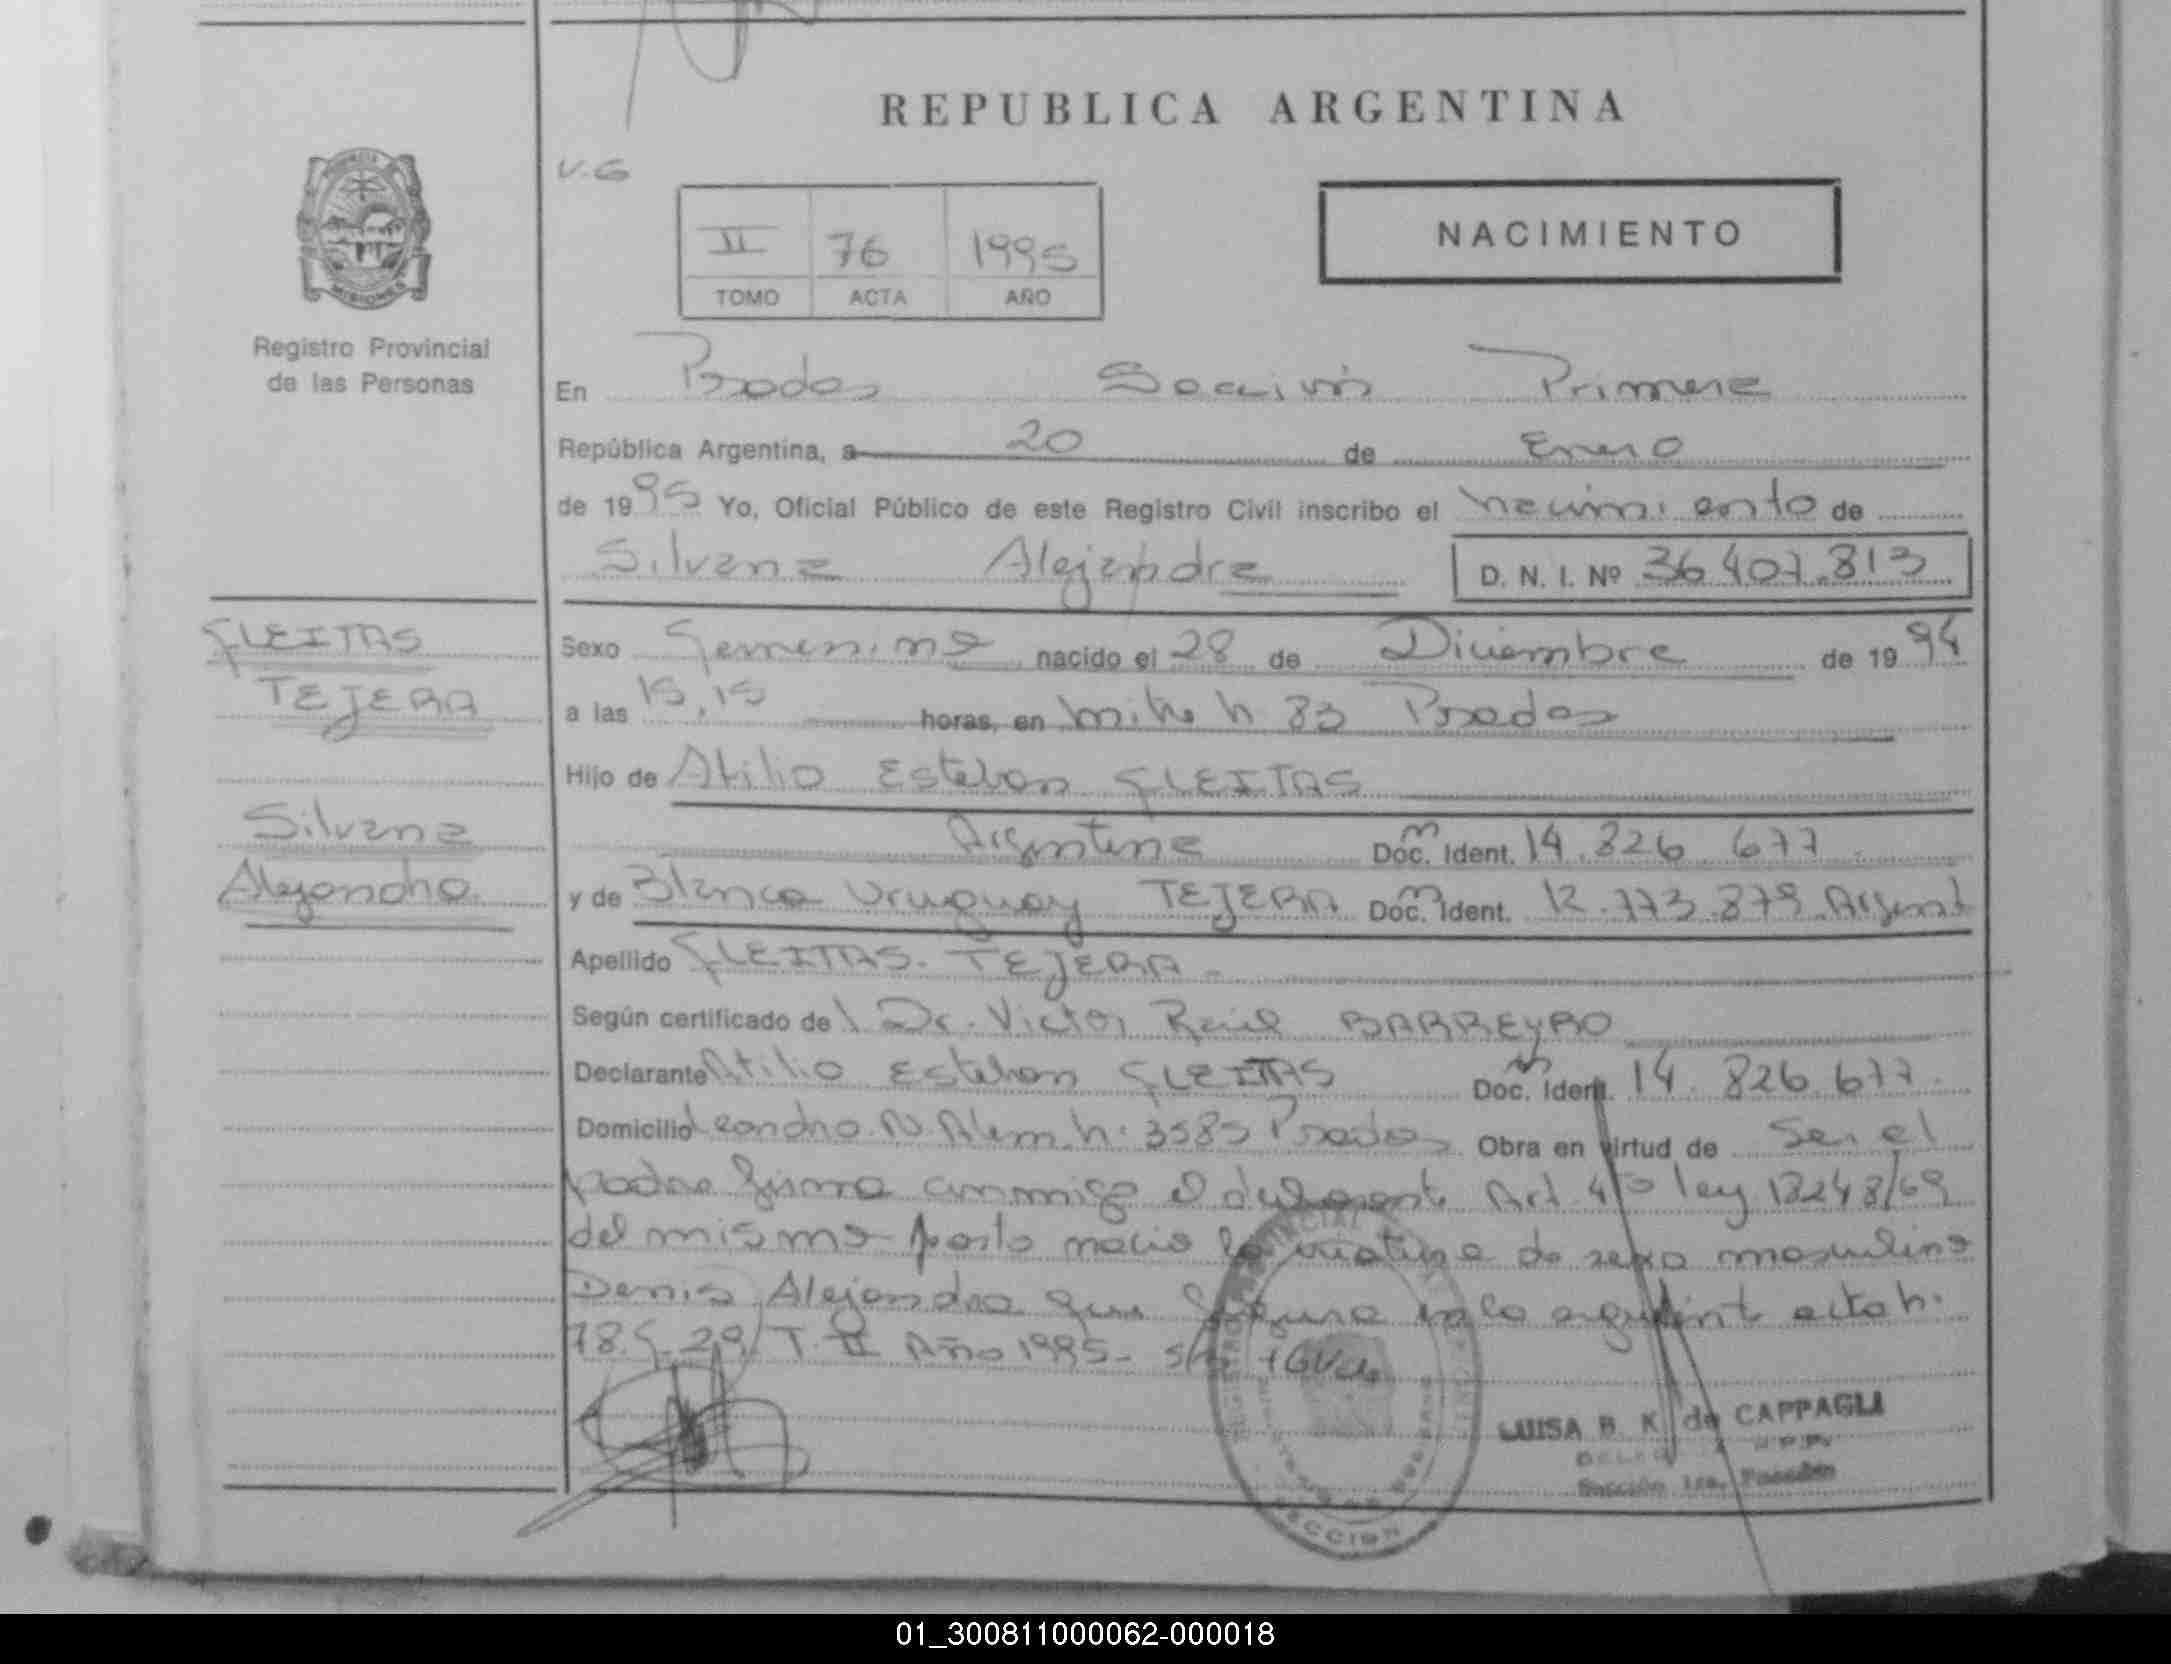 REPUBLICA ARGENTINA
V.G
NACIMIENTO
II 76 1995
TOMO ACTA AÑO
MISIONES
Registro Provincial
de las Personas
En Posadas Sección Primera
República Argentina, a 20 de Enero
de 1995 Yo, Oficial Público de este Registro Civil inscribo el nacimiento de
Silvana Alejandra D. N. I. Nº 36 407.813
FLEITAS
TEJERA
Silvana
Alejandra
Sexo Femenino nacido el 28 de Diciembre de 1994
a las 15,15 horas, en Mitre n 83 Posadas
Hijo de Atilio Esteban FLEITAS
Argentina Doc. Ident. 14.826 677
y de Blanca Uruguay TEJERA Doc. Ident. 12.773.879 Argent
Apellido FLEITAS. TEJERA -
Según certificado del Dr. Victor Raúl BARREYRO
Declarante Atilio Esteban FLEITAS Doc. Ident. 14. 826.677.
Domicilio Leandro N Alem n. 3585 Posadas Obra en virtud de Ser el
padre firma conmigo el declarante Art 4º ley 18248/69
del mismo parto nacio la criatura de sexo masculino
Denis Alejandro que figura en la siguiente acta n.
78. F. 29 T. II Año 1995-
LUISA B. K. de CAPPAGLI
Sección 1ra. Posadas
SECCION
01_300811000062-000018